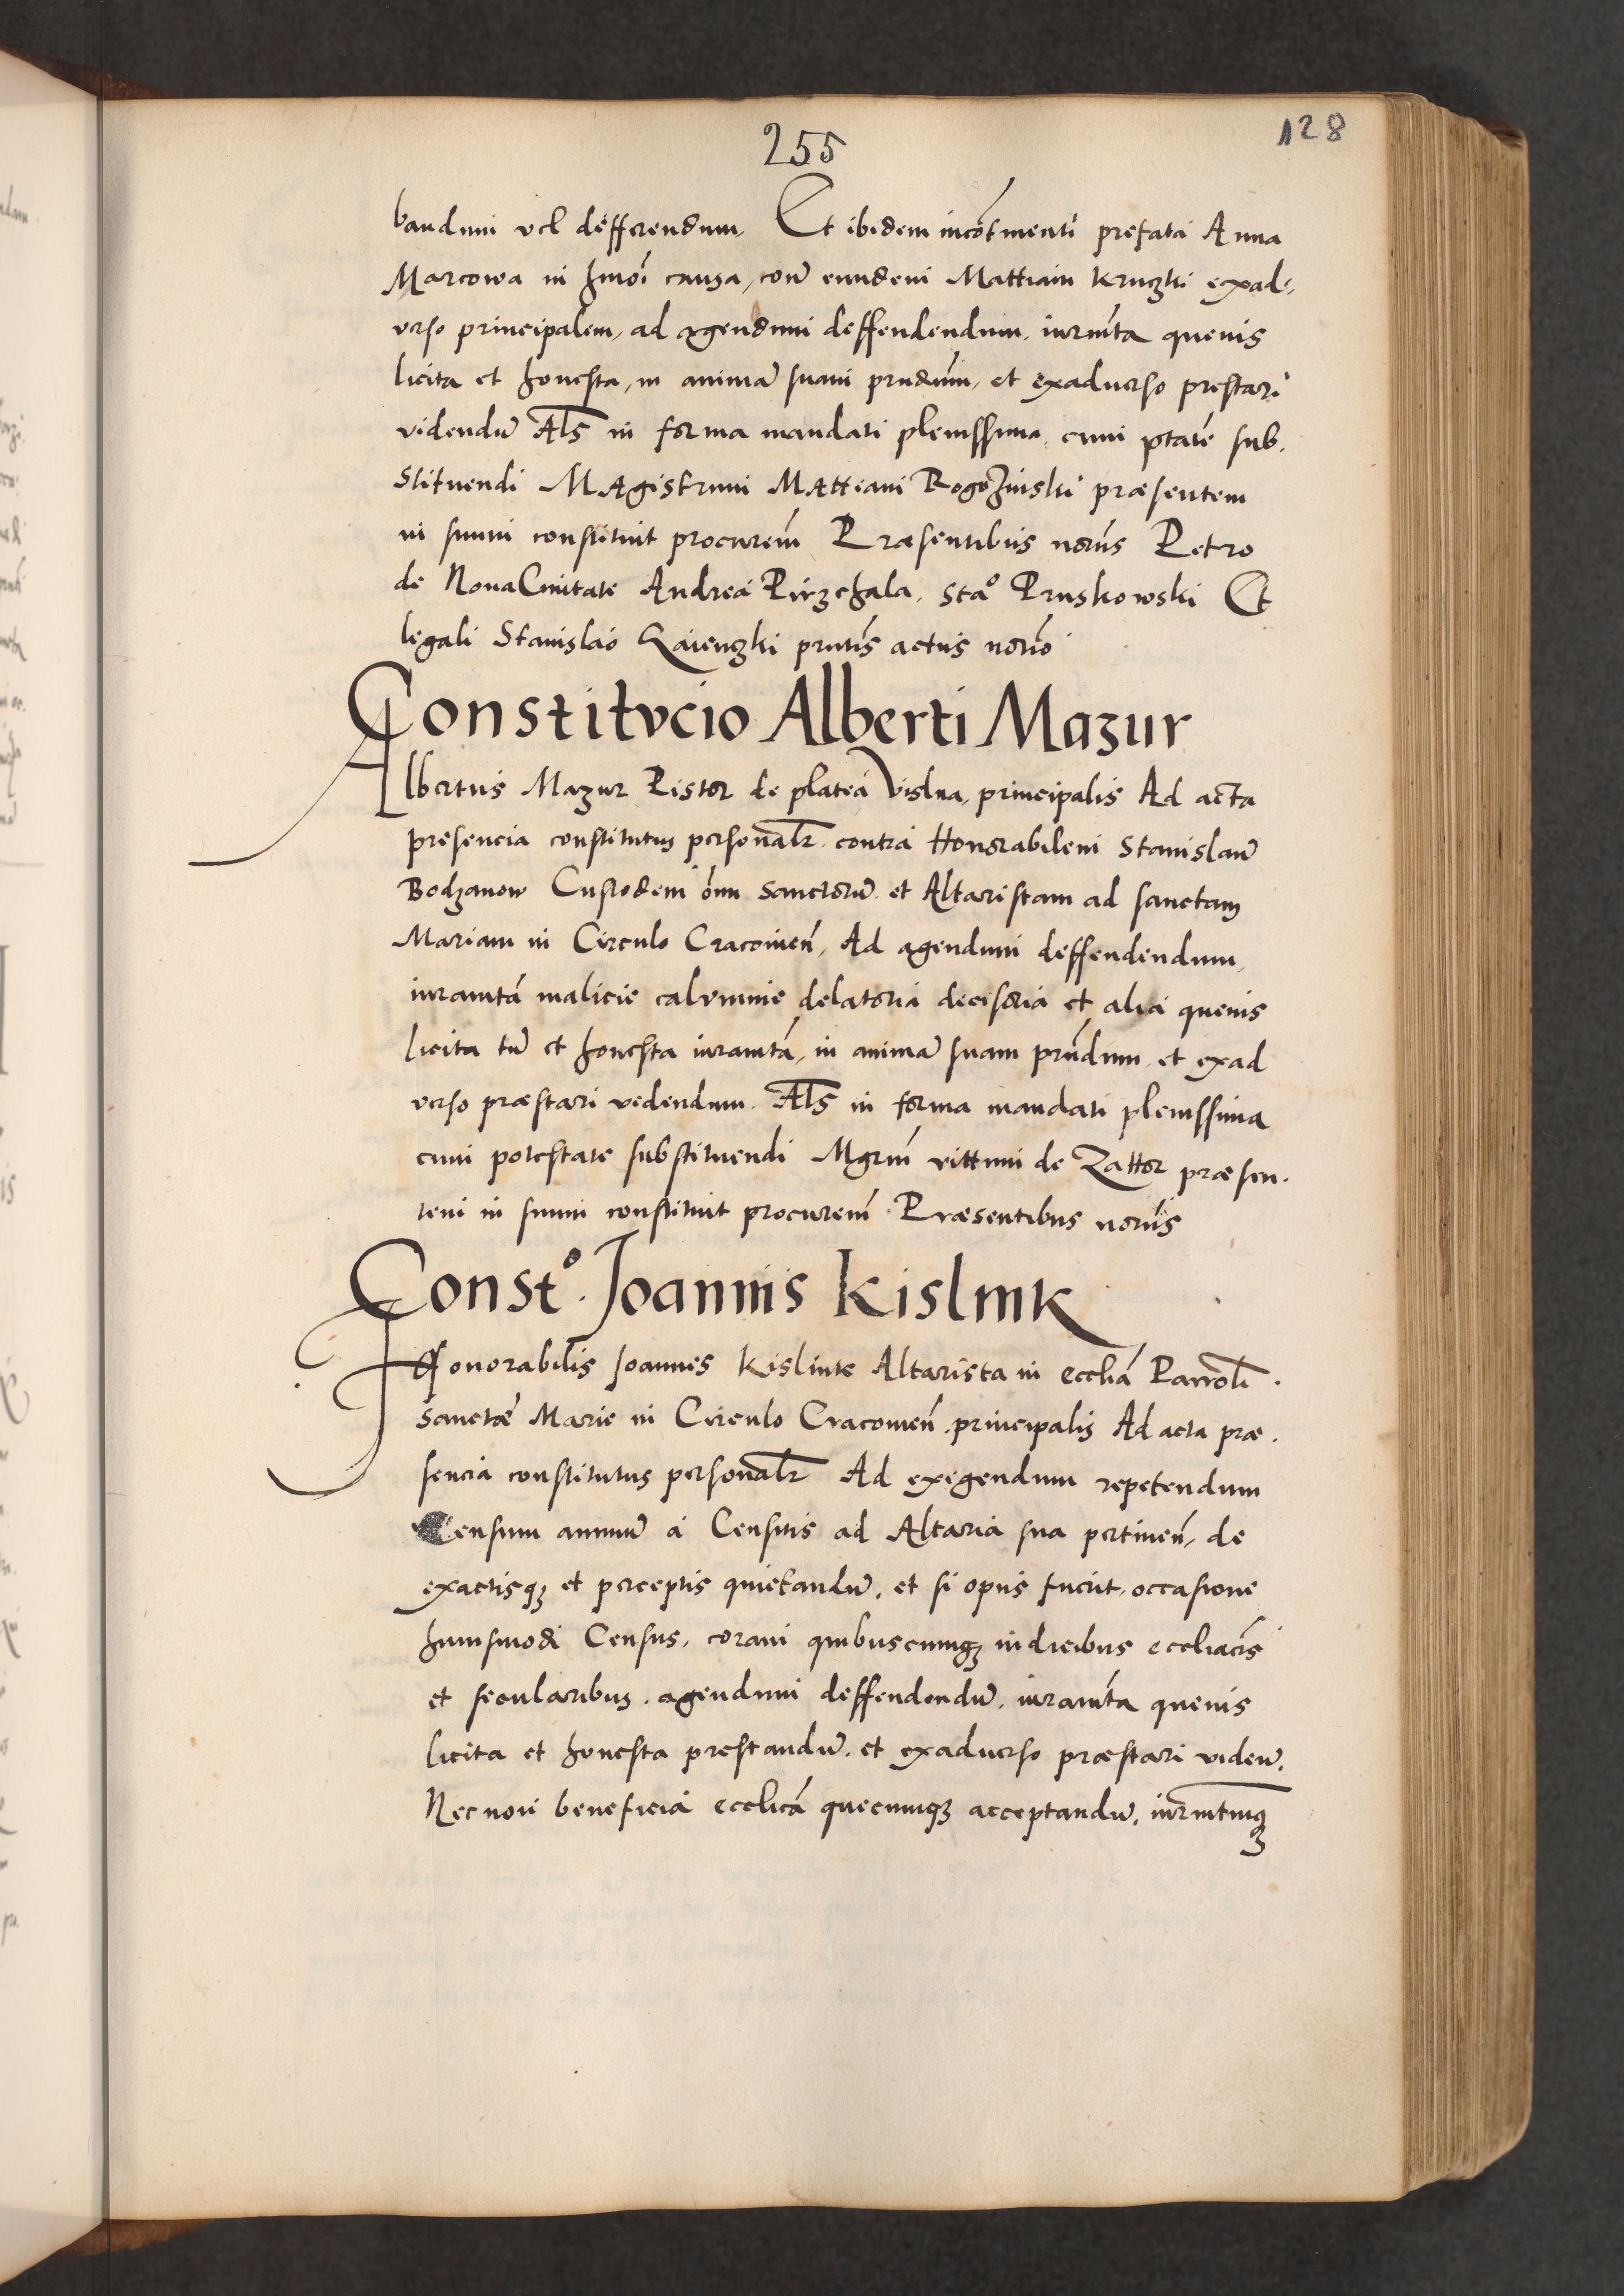 255
128
bandum vel defferendum. Et ibidem incõtinenti prefata Anna
Marcowa in hmõi causa, contr̃ eundem Mattiam Kruczki exad-
verso principalem, ad agendum deffendendum, iuram̃ta quevis
licita et honesta, in animã suam prñdum, et exadverso prestari
videndũ Als̃ in forma mandati plenissima, cum ptatẽ sub-
stituendi MAgistrum MAttiam Rogozinski præsentem
in suum constituit procurem̃ Præsentibus notr̃ijs Petro
de Nova Civitate Andrea Pirzchala, Staº Pruskowski Et
legali Stanislao Zaienczki prñtis actus notr̃io
Constitvcio Alberti Mazur
Albertus Mazur Pistor de platea Vislna, principalis Ad acta
presencia constitutus personalr̃ contra Honorabilem Stanislaũ
Bodzanow Custodem om̃ sanctorũ et Altaristam ad sanctam
Mariam in Circulo Cracovieñ, Ad agendum deffendendum,
iuramtã malicie calvmnie delatoria decisoria et alia quevis
licita tñ et honesta iuramtã, in animã suam prñdum et exad
verso præstari vedendum. Als̃ in forma mandati plenissima
cum potestate substituendi Mgrm̃ vittum de Zattor præsen-
tem in suum constituit procurem̃ Præsentibus notr̃ijs
Constº. Joannis Kislink
Honorabilis Joannes Kislinke Altarista in eccliã Parrolĩ
sanctæ Marie in Circulo Cracovieñ principalis Ad acta præ-
sencia constitutus personalr̃ Ad exigendum repetendum
Censum annuũ a Censitis ad Altaria sua pertineñ, de
exactisqꝫ et perceptis quietandũ, et si opus fuerit, occasione
huiusmodi Census, coram quibuscumqꝫ iudicibus eccliacis̃
et secularibus, agendum deffendendũ, iuram̃ta quevis
licita et honesta prestandũ, et exadverso præstari videñ.
Necnon beneficia ecclicã quecumqꝫ acceptandũ, iuram̃tumqꝫ